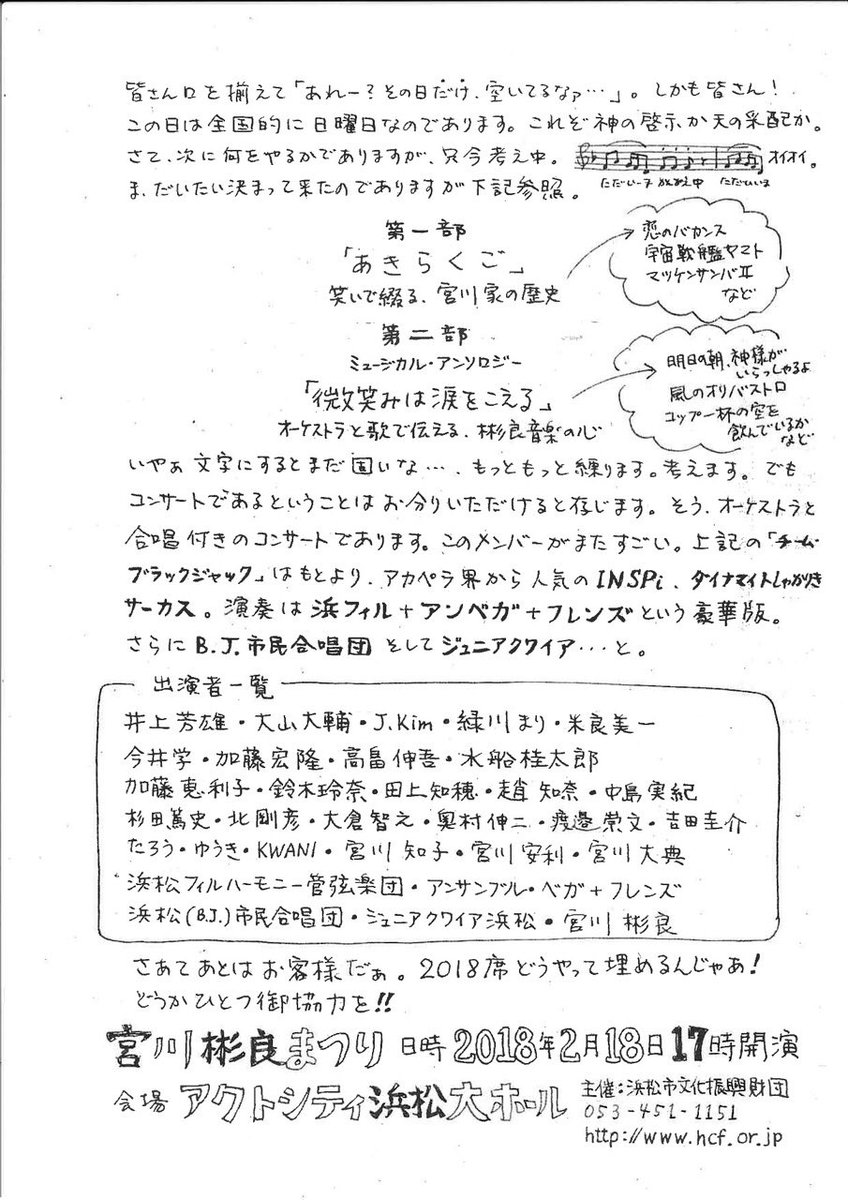 皆さん口を揃えて「あれー?その日だけ、空いてるなァ…」。しかも皆さん!
この日は全国的に日曜日なのであります。これぞ神の啓示か天の采配か。
さて、次に何をやるかでありますが、只今考え中。オイオイ。
ただいーま かんがえ中 ただいいま
ま、だいたい決まって来たのでありますが下記参照。
第一部
「あきらくご」
笑いで綴る、宮川家の歴史
恋のバカンス
宇宙戦艦ヤマト
マツケンサンバⅡ
など
第二部
ミュージカル・アンソロジー
「微笑みは涙をこえる」
オーケストラと歌で伝える、彬良音楽の心
明日の朝、神様が
いらっしゃるよ
風のオリバストロ
コップ一杯の空を
飲んでいるか
など
いやぁ文字にするとまだ固いな…、もっともっと練ります。考えます。でも
コンサートであるということはお分りいただけると存じます。そう、オーケストラと
合唱付きのコンサートであります。このメンバーがまたすごい。上記の「チーム
ブラックジャック」はもとより、アカペラ界から人気のINSPi、ダイナマイトしゃかりき
サーカス。演奏は浜フィル+アンベガ+フレンズという豪華版。
さらにB.J.市民合唱団そしてジュニアクワイア…と。
出演者一覧
井上芳雄・大山大輔・J.Kim・緑川まり・米良美一
今井学・加藤宏隆・高畠伸吾・水船桂太郎
加藤恵利子・鈴木玲奈・田上知穂・趙知奈・中島実紀
杉田篤史・北剛彦・大倉智之・奥村伸二・渡邉崇文・吉田圭介
たろう・ゆうき・KWANI・宮川知子・宮川安利・宮川大典
浜松フィルハーモニー管弦楽団・アンサンブル・ベガ+フレンズ
浜松(B.J.)市民合唱団・ジュニアクワイア浜松・宮川彬良
さあてあとはお客様だぁ。2018席どうやって埋めるんじゃあ!
どうかひとつ御協力を!!
宮川彬良まつり 日時 2018年2月18日17時開演
会場 アクトシティ浜松大ホール
主催:浜松市文化振興財団
053-451-1151
http://www.hcf.or.jp